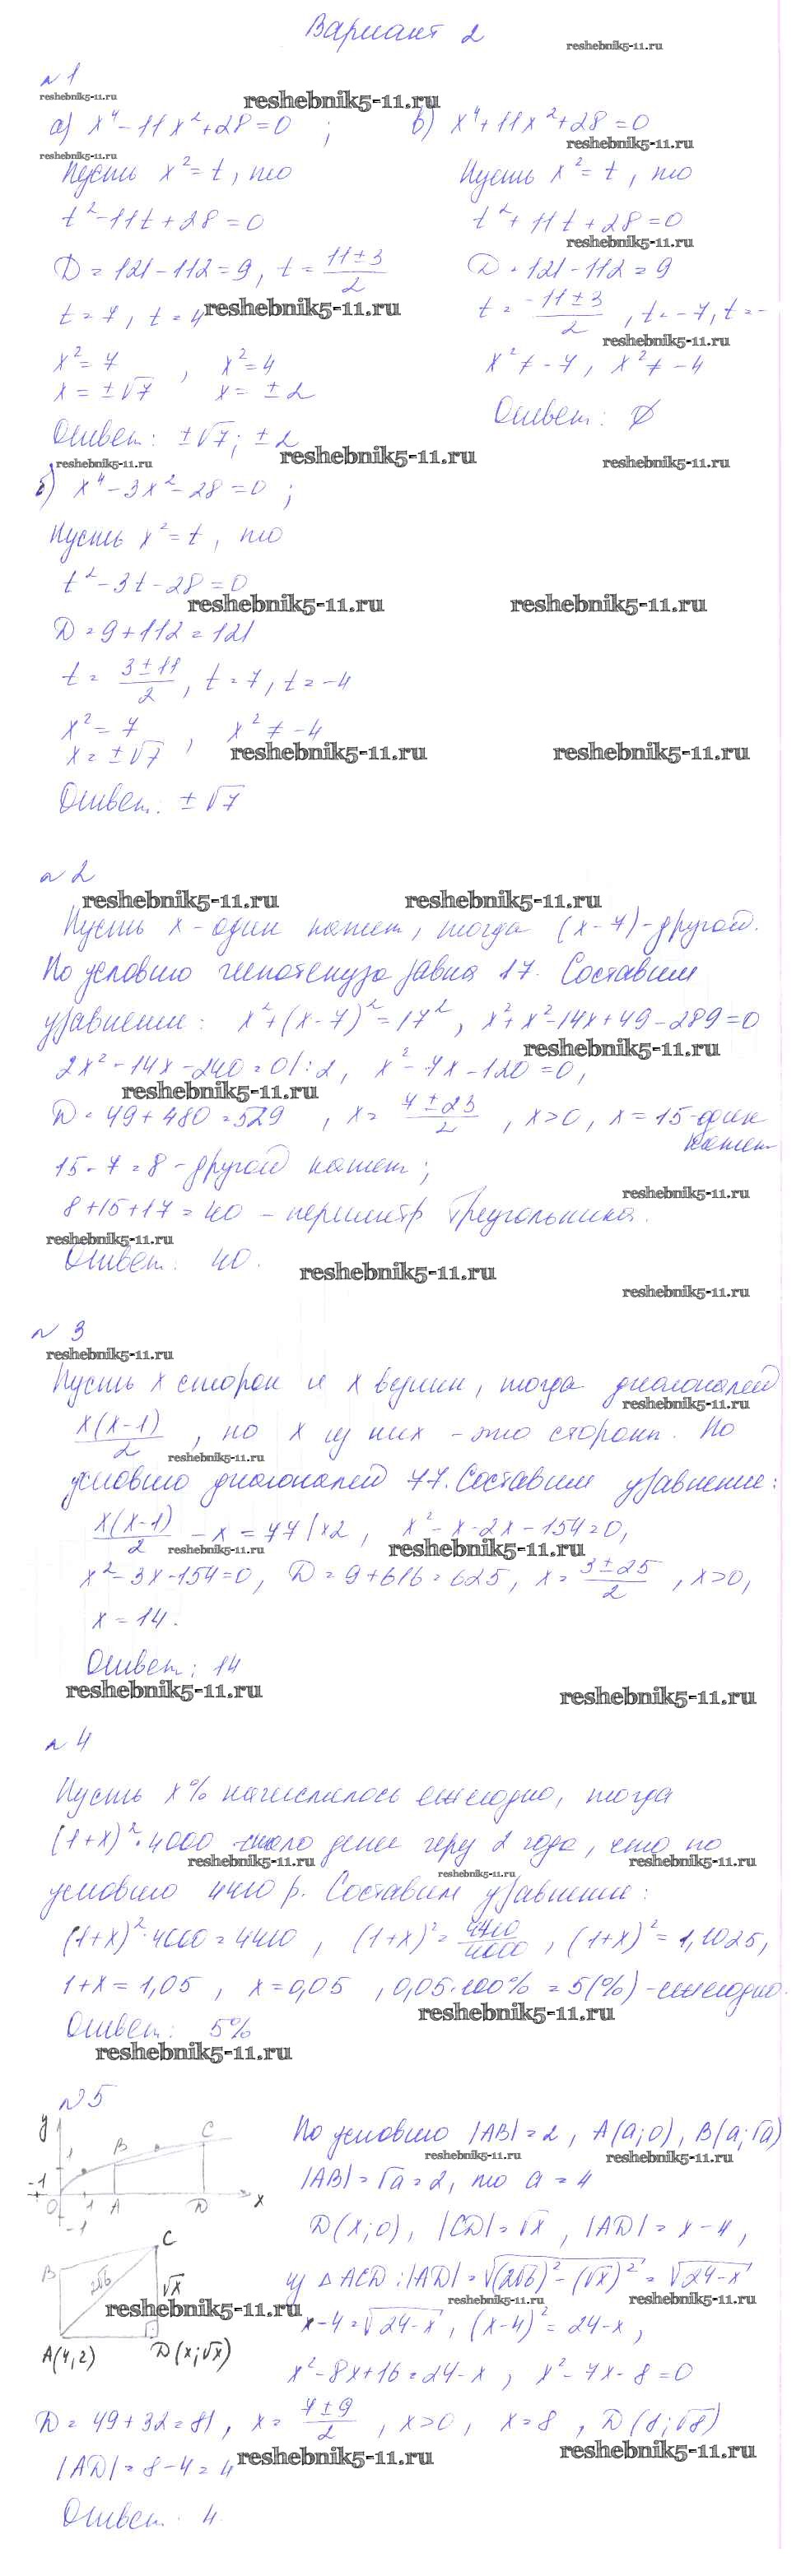 Вариант 2
reshebnik5-11.ru
№1
reshebnik5-11.ru
reshebnik5-11.ru
а) x⁴-11x²+28=0 ;
в) x⁴+11x²+28=0
reshebnik5-11.ru
reshebnik5-11.ru
Пусть x²=t, то
Пусть x²=t, то
t²-11t+28=0
t²+11t+28=0
reshebnik5-11.ru
D=121-112=9, t=(11±3)/2
D=121-112=9
t=7, t=4
reshebnik5-11.ru
t=(-11±3)/2, t=-7, t=-
reshebnik5-11.ru
x²=7 , x²=4
x=±√7 x=±2
x²≠-7, x²≠-4
Ответ: ±√7; ±2
Ответ: ∅
reshebnik5-11.ru
reshebnik5-11.ru
reshebnik5-11.ru
б) x⁴-3x²-28=0 ;
Пусть x²=t, то
t²-3t-28=0
reshebnik5-11.ru
reshebnik5-11.ru
D=9+112=121
t=(3±11)/2, t=7, t=-4
x²=7 , x²≠-4
x=±√7
reshebnik5-11.ru
reshebnik5-11.ru
Ответ: ±√7
№2
reshebnik5-11.ru
reshebnik5-11.ru
Пусть x-один катет, тогда (x-7)-другой.
По условию гипотенуза равна 17. Составим
уравнение: x²+(x-7)²=17², x²+x²-14x+49-289=0
reshebnik5-11.ru
2x²-14x-240=0|:2, x²-7x-120=0,
reshebnik5-11.ru
D=49+480=529 , x=(7±23)/2 , x>0, x=15-один
катет
15-7=8-другой катет;
reshebnik5-11.ru
8+15+17=40 - периметр треугольника.
reshebnik5-11.ru
Ответ: 40.
reshebnik5-11.ru
reshebnik5-11.ru
№3
reshebnik5-11.ru
Пусть x сторон и x вершин, тогда диагоналей
reshebnik5-11.ru
x(x-1)/2 , но x из них - это стороны. По
reshebnik5-11.ru
условию диагоналей 77. Составим уравнение:
x(x-1)/2 - x=77|×2, x²-x-2x-154=0,
reshebnik5-11.ru
reshebnik5-11.ru
x²-3x-154=0, D=9+616=625, x=(3±25)/2 , x>0,
x=14.
Ответ: 14
reshebnik5-11.ru
reshebnik5-11.ru
№4
Пусть x% начислялось ежегодно, тогда
(1+x)²·4000 стало денег через 2 года, что по
reshebnik5-11.ru
reshebnik5-11.ru
reshebnik5-11.ru
условию 4410 р. Составим уравнение:
(1+x)²·4000=4410, (1+x)²=4410/4000, (1+x)²=1,1025,
1+x=1,05, x=0,05, 0,05·100%=5(%)-ежегодно.
reshebnik5-11.ru
Ответ: 5%
reshebnik5-11.ru
№5
y
1
B
C
-1
0
1
A
D
x
-1
По условию |AB|=2, A(a;0), B(a;√a)
reshebnik5-11.ru
reshebnik5-11.ru
|AB|=√a=2, то a=4
D(x;0), |CD|=√x, |AD|=x-4,
C
B
2√6
√x
из △ACD: |AD|=√((2√6)²-(√x)²)=√(24-x)
reshebnik5-11.ru
reshebnik5-11.ru
reshebnik5-11.ru
x-4=√(24-x), (x-4)²=24-x,
A(4,2)
D(x;√x)
x²-8x+16=24-x, x²-7x-8=0
D=49+32=81, x=(7±9)/2 , x>0, x=8, D(8;√8)
reshebnik5-11.ru
reshebnik5-11.ru
|AD|=8-4=4
Ответ: 4.